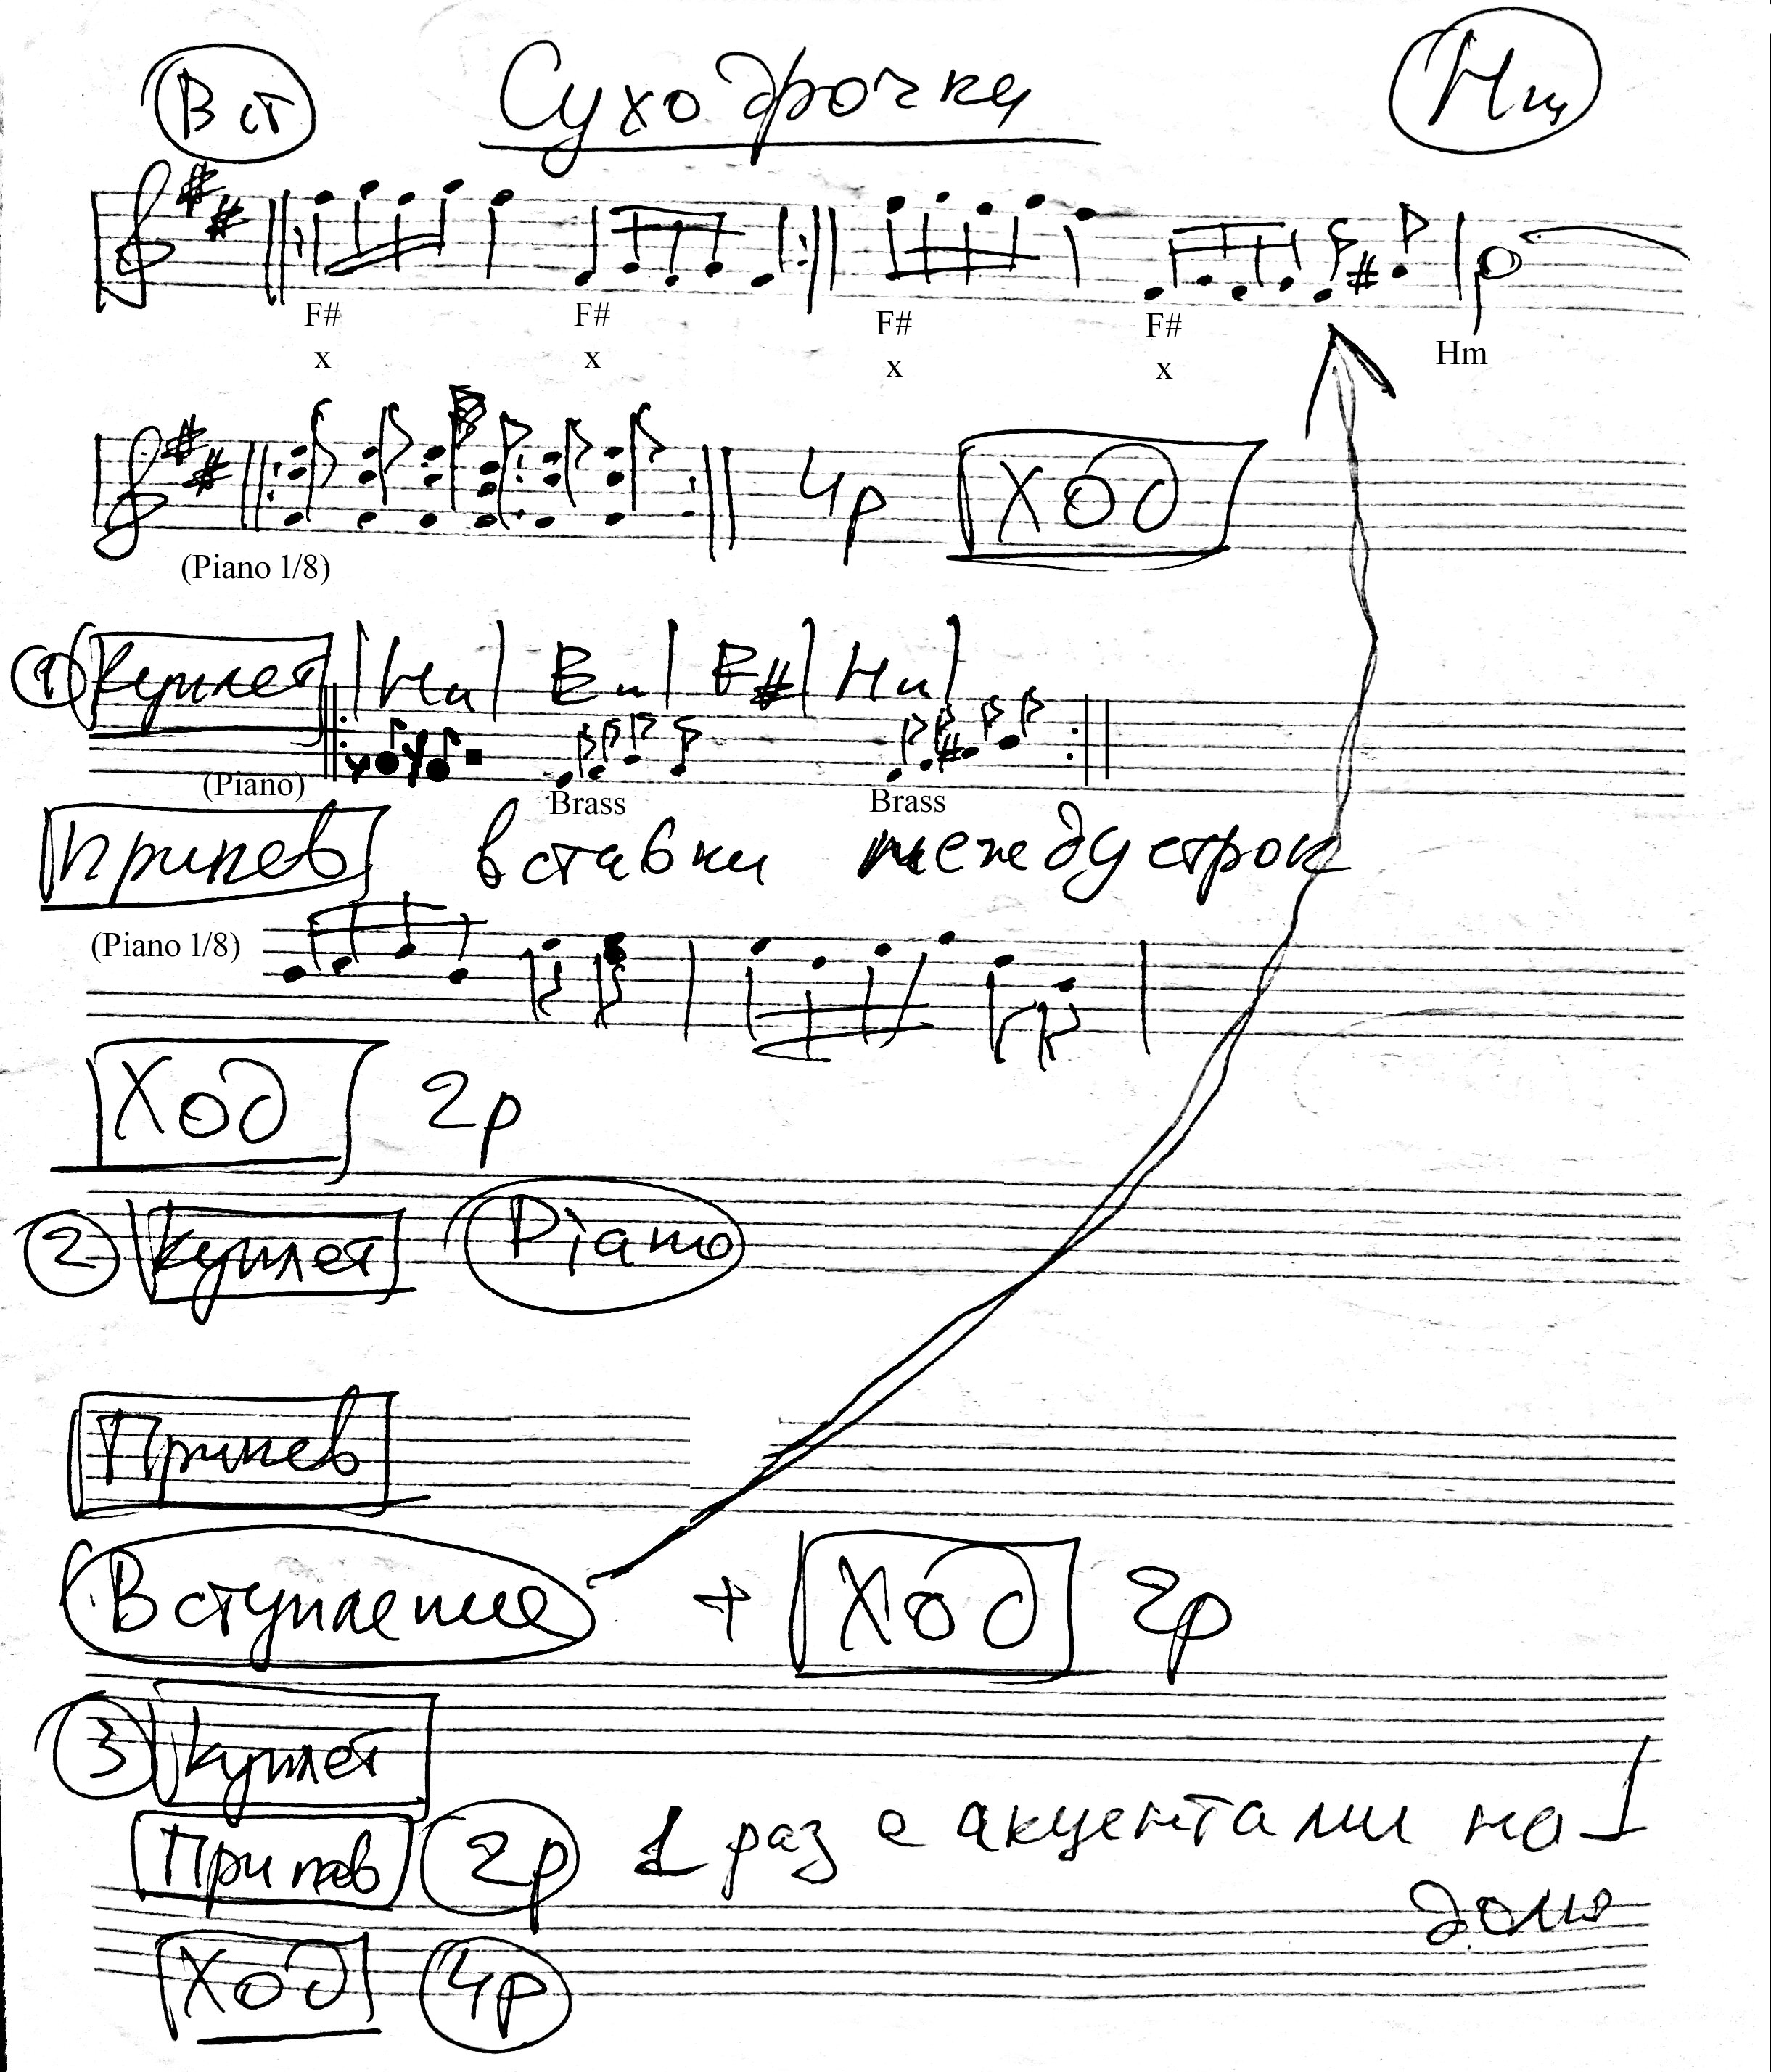 Вст Суходрочка Hm
F# F# F# F# Hm
x x x x
4р Ход
(Piano 1/8)
1 Куплет | Hm | Em | F# | Hm |
(Piano) Brass Brass
Припев вставки между строк
(Piano 1/8)
Ход 2р
2 Куплет Piano
Припев
Вступление + Ход 2р
3 Куплет
Припев 2р 1 раз с акцентами на 1
долю
Ход 4р